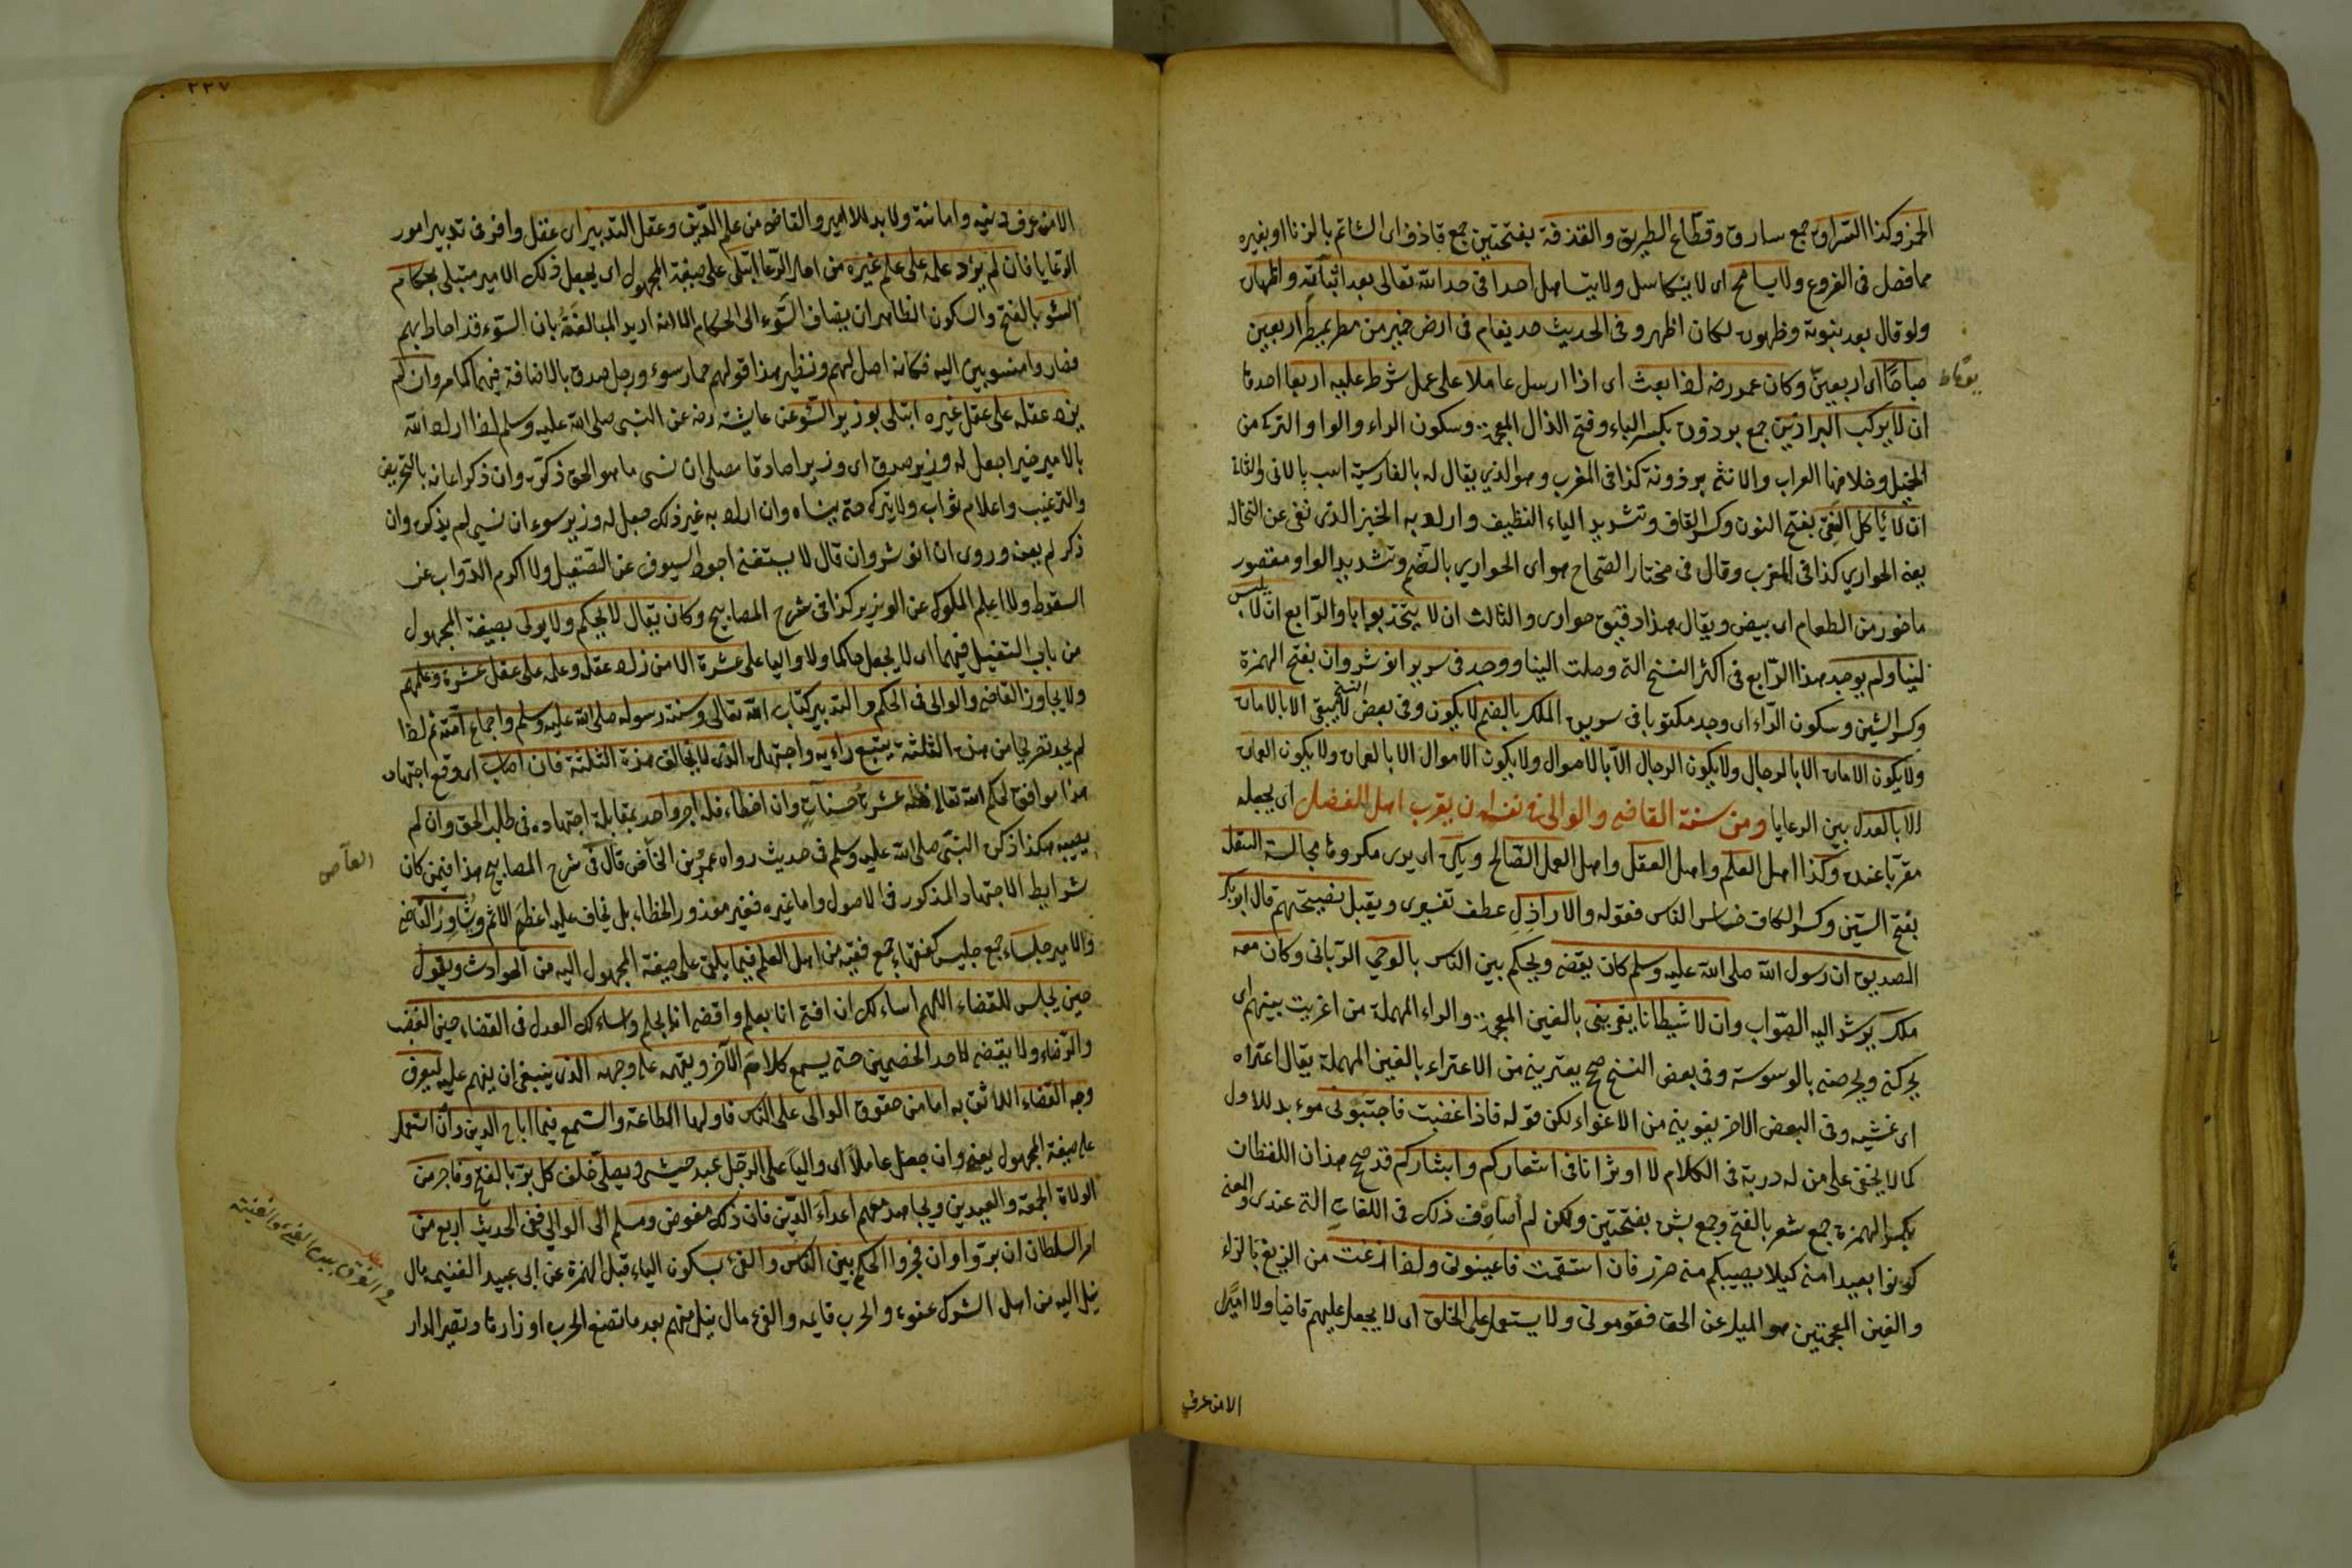 الخمر وكذا السراق جمع سارق وقطاع الطريق والقذفة بفتحتين جمع قاذف اى الشاتم بالزنا او بغيره
مما فصل فى الفروع ولا يسامح اى لا يتكاسل ولا يتساهل احدا فى حد الله تعالى بعد اثباته واظهاره
ولو قال بعد ثبوته وظهوره لكان اظهر وفى الحديث حد يقام فى ارض خير من مطر يمطر اربعين
صباحا اى اربعين وكان عمر رضه اذا بعث اى اذا ارسل عاملا على عمل شرط عليه اربعا احدها
ان لا يركب البراذين جمع برذون بكسر الباء وفتح الذال المعجمة وسكون الراء والواو التركى من
الخيل وخلافها العراب والانثى برذونة كذا فى المغرب وهو الذي يقال له بالفارسية اسب بالانى والثانى
ان لا يأكل النقى بفتح النون وكسر القاف وتشديد الياء النظيف واراد به الخبز الذى نقى عن النخالة
يعنى الحوارى كذا فى المغرب وقال فى مختار الصحاح هو اى الحوارى بالضم وتشديد الواو مقصور
ما حور من الطعام اى بيض ويقال هذا دقيق حوارى والثالث ان لا يتخذ بوابا والرابع ان لا يلبس
لينا ولم يوجد هذا الرابع فى اكثر النسخ التى وصلت الينا ووجد فى سرير انوشروان بفتح الهمزة
وكسر الشين وسكون الراء اى وجد مكتوبا فى سرير الملك بالضم لا يكون وفى بعض النسخ لا يبقى الا بالامارة
ولا يكون الامارة الا بالرجال ولا يكون الرجال الا بالاموال ولا يكون الاموال الا بالعمارة ولا يكون العمارة
الا بالعدل بين الرعايا ومن سنة القاضى والوالى فى نفسه ان يقرب اهل الفضل اى يجعله
مقربا عنده وكذا اهل العلم واهل العقل واهل العمل الصالح ويكره اى يرى مكروها مجالسة السفل
بفتح السين وكسر الكاف خساس الناس فقوله والاراذل عطف تفسيرى ويقبل نصيحتهم قال ابو بكر
الصديق ان رسول الله صلى الله عليه وسلم كان يقضى ويحكم بين الناس بالوحي الربانى وكان معه
ملك يرشد اليه الصواب وان لا شيطانا يغرينى بالغين المعجمة والراء المهملة من اغريت بينهم اى
يحركنى ويحرصنى بالوسوسة وفى بعض النسخ صح يعترينى من الاعتراء بالعين المهملة يقال اعتراه
اى غشيه وفى البعض الاخر يغوينى من الاغواء لكن قوله فاذا غضبت فاجتنبونى موءيد للاول
كما لا يخفى على من له دربة فى الكلام لا اوثرانا فى اشعاركم وابشاركم قد صح هذان اللفظان
بكسر الهمزة جمع شعر بالفتح وجمع بشر بفتحتين ولكن لم اصادف ذلك فى اللغات التى عندى والمعنى
كونوا بعيدا منى كيلا يصيبكم منى ضرر فان استقمت فاعينونى واذا زغت من الزيغ بالزاء
والغين المعجمتين هو الميل عن الحق فقومونى ولا يستعمل على الخلق اى لا يجعل عليهم قاضيا ولا اميرا
الا من عرف
٢٢٧
الا من عرف دينه وامانته ولا بد للامير والقاضى من علم الدين وعقل التدبير اى عقل وافر فى تدبير امور
الرعايا فان لم يزد علمه على علم غيره من اهل الرعايا ابتلى على صيغة المجهول اى يجعل ذلك الامير مبتلى بحكام
السوء بالفتح والسكون الظاهر ان يضاف السوء الى الحكام الا انه اريد المبالغة بان السوء قد احاط بهم
فصاروا منسوبين اليه فكانه اصل لهم ونظير هذا قولهم حمار سوء ورجل صدق بالاضافة فيهما كما مر وان لم
يزد عقله على عقل غيره ابتلى بوزير السوء عن عايشة رضه عن النبى صلى الله عليه وسلم اذا اراد الله
بالامير خيرا جعل له وزير صدق اى وزيرا صادقا مصلحا ان نسى ما هو الحق ذكره وان ذكر اعانه بالتحريض
والترغيب واعلام ثوابه ولا يتركه حتى ينساه وان اراد به غير ذلك جعل له وزير سوء ان نسي لم يذكره وان
ذكر لم يعنه وروى ان انوشروان قال لا يستغنى اجود السيوف عن الصقيل ولا اكرم الدواب عن
السقوط ولا اعلم الملوك عن الوزير كذا فى شرح المصابيح وكان يقال لا يحكم ولا يولى بصيغة المجهول
من باب التفعيل فيهما اى لا يجعل حاكما ولا واليا على عشرة الا من زاد عقله وعلمه على عقل عشرة وعلمهم
ولا يجاوز القاضى والوالى فى الحكم والتدبير كتاب الله تعالى وسنة رسوله صلى الله عليه وسلم واجماع امته ثم اذا
لم يجد تصريحا من هذه الثلثة يتبع رايه واجتهاده الذى لا يخالف هذه الثلثة فان اصاب اى وقع اجتهاده
هذا موافق لحكم الله تعالى فله عشر حسنات وان اخطاء فله اجر واحد بمقابلة اجتهاده فى طلب الحق وان لم
يصيبه هكذا ذكره النبى صلى الله عليه وسلم فى حديث رواه عمرو بن العاص قال فى شرح المصابيح هذا فيمن كان
شرايط الاجتهاد المذكور فى الاصول واما غيره فغير معذور الخطاء بل يخاف عليه اعظم الاثم ويشاور القاضى
والامير جلساء جمع جليس كفقهاء جمع فقيه من اهل العلم فيما يلقى على صيغة المجهول اليه من الحوادث ويقول
حين يجلس للقضاء اللهم اساءلك ان افتى انا بعلم واقضى انا بحلم واساءلك العدل فى القضاء حين الغضب
والرضاء ولا يقضى لاحد الخصمين حتى يسمع كلام الآخر ويفهمه على وجهه الذى ينبغى ان يفهم عليه ليعرف
وجه القضاء اللائق به اما من حقوق الوالى على الناس فاولها الطاعة والسمع فيما اباح الدين وان استعمل
على صيغة المجهول يعنى وان جعل عاملا اى واليا على الرجل عبد حبشى ويصلى خلف كل بر بالفتح وفاجر من
الولاة الجمعة والعيدين ويجاهد معهم اعداء الدين فان ذلك مفوض ومسلم الى الوالي ففى الحديث اربع من
امر السلطان ان بروا وان فجروا الحكم بين الناس والفئ بسكون الياء قبل الهمزة عن ابى عبيد الغنيمة مال
نيل اليه من اهل الشرك عنوة والحرب قايمه والفئ مال نيل منهم بعد ما تضع الحرب اوزارها وتصير الدار
العاص
الفرق بين الفئ والغنيمة